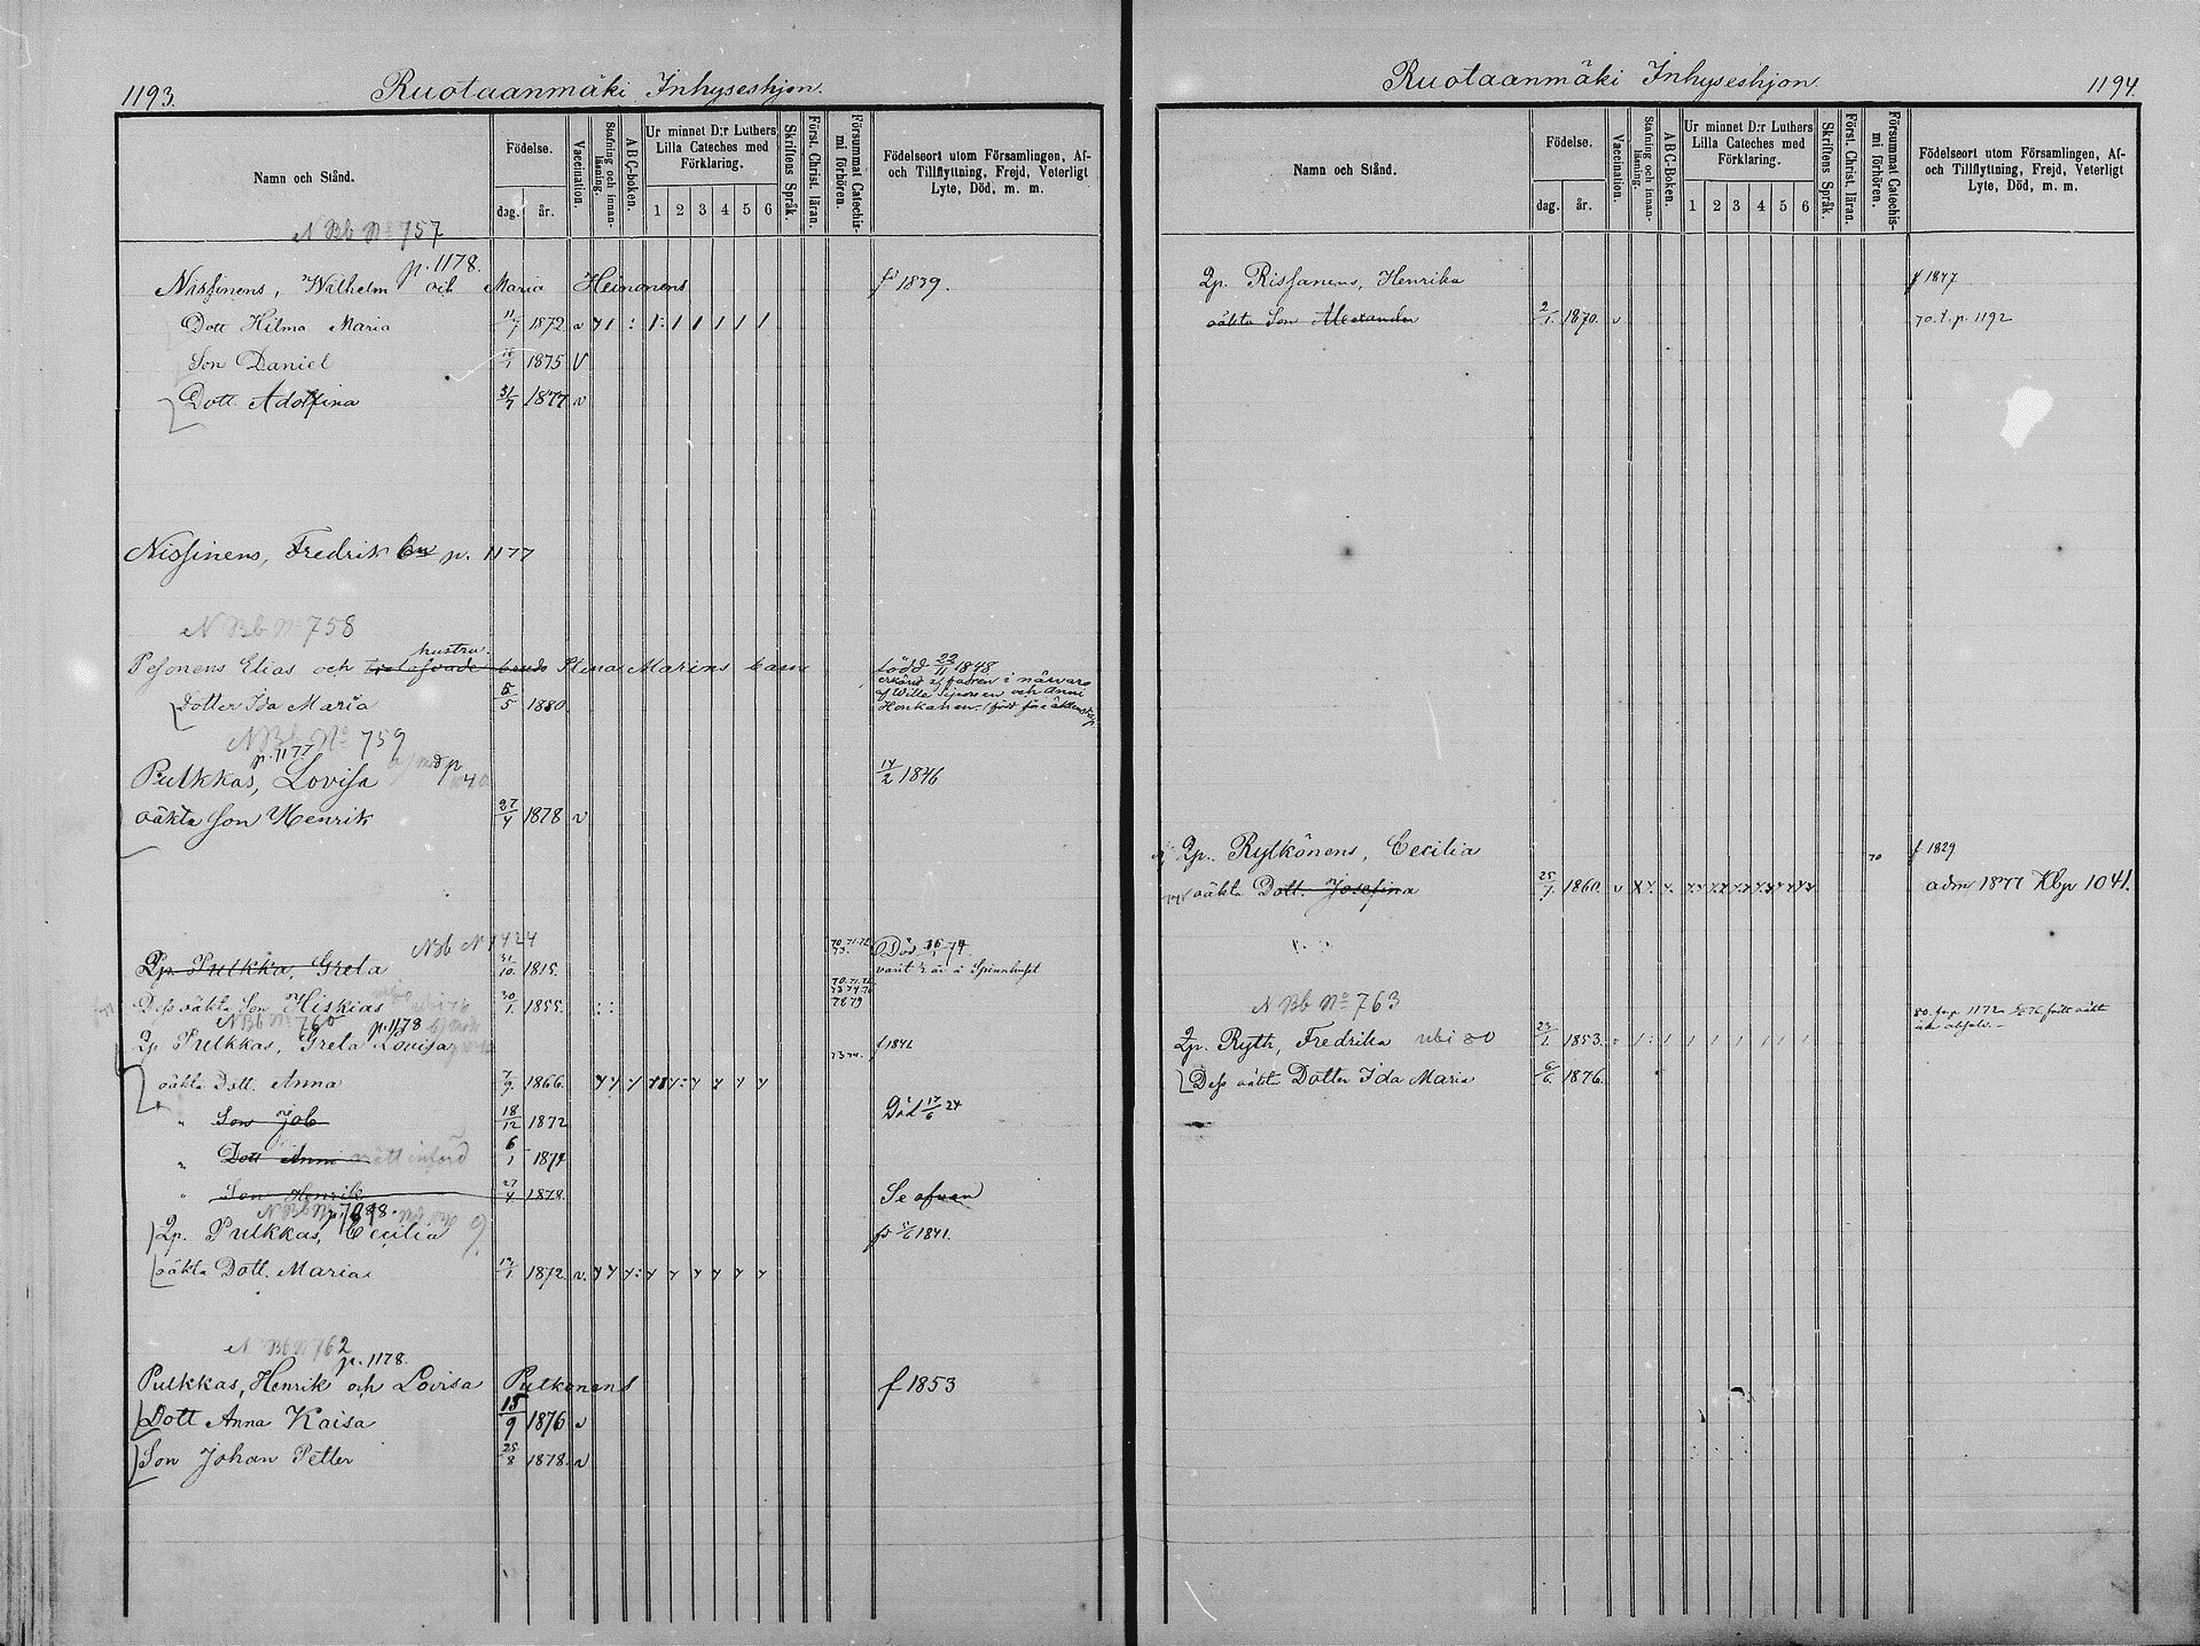 1193.
Ruotaanmäki Inhyseshjon.
Namn och Stånd.
Födelse.
dag.
år.
Vaccination.
Stafning och innan-
läsning.
ABC-boken.
Ur minnet D:r Luthers
Lilla Cateches med
Förklaring.
1 2 3 4 5 6
Skriftens Språk.
Först. Christ. läran.
Försummat Catechis-
mi förhören.
Födelseort utom Församlingen, Af-
och Tillflyttning, Frejd, Veterligt
Lyte, Död, m. m.
N Bb No 757
p. 1178.
Nissinens, Wilhelm och Maria Heinonens f 1839.
Dott Hilma Maria 11/7 1872
Son Daniel 1875 V
Dott. Adolfina 31/7 1877 v
Nissinens, Fredrik p. 1177
N Bb No 758
hustru
Pesonens Elias och trolofvade bruds Stina Marins barn född 22/11 1848
erkänd af fadren i närvaro
af Wille och Anni
Dotter Ida Maria 5/5 1880. Honkanen
N Bb No 759
p. 1177
Pulkkas, Lovisa 14/2 1846
oäkta son Henrik 27/4 1878 v
Nbb N 1424
Qp. Pulkka, Greta 31/10. 1815. Död 16/1 74
varit 2 år å Spinnhuset
Dess oäkta Son Hiskias 30/1. 1855.
78 79
N Bb No 760 p. 1178
Qp Pulkkas, Greta Lovisa f 1842
oäkta Dott. Anna 7/9. 1866.
" Son Job 18/12 1872 Död 17/6 24
" Dott Anni rätt införd 6/1 1874
" Son Henrik 27/4 1878. Se ofvan
Qp. Pulkkas, Cecilia 1841.
oäkta Dott. Maria 1872.
N Bb N 762
p. 1178.
Pulkkas, Henrik och Lovisa Pulkonens f 1853
Dott Anna Kaisa 15/9 1876 v
Son Johan Petter 25/8 1878. v
Ruotaanmäki Inhyseshjon.
1194.
Namn och Stånd.
Födelse.
dag.
år.
Vaccination.
Stafning och innan-
läsning.
ABC-Boken.
Ur minnet D:r Luthers
Lilla Cateches med
Förklaring.
1 2 3 4 5 6
Skriftens Språk.
Först. Christ. läran.
Försummat Catechis-
mi förhören.
Födelseort utom Församlingen, Af-
och Tillflyttning, Frejd, Veterligt
Lyte, Död, m. m.
Qp. Rissanens, Henrika f 1847
oäkta Son Alexander 2/1. 1870. v 70. t. p. 1192
Qp. Rytkönens, Cecilia 70 f 1829
oäkta Dott. Josefina 25/1. 1860. v adm 1877 Kbp 1041.
N Bb No 763
80. fr. p. 1172
Qp. Ryth, Fredrika ubi 80 23/1. 1853.
Dess oäkta Dotter Ida Maria 6/6. 1876.